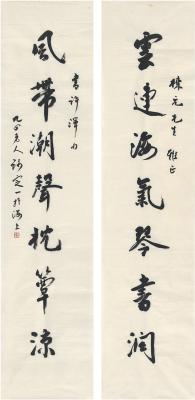 雲連海氣琴書潤
樸元先生雅正
風帶潮聲枕簟涼
書許渾句
九十老人 定一於海上